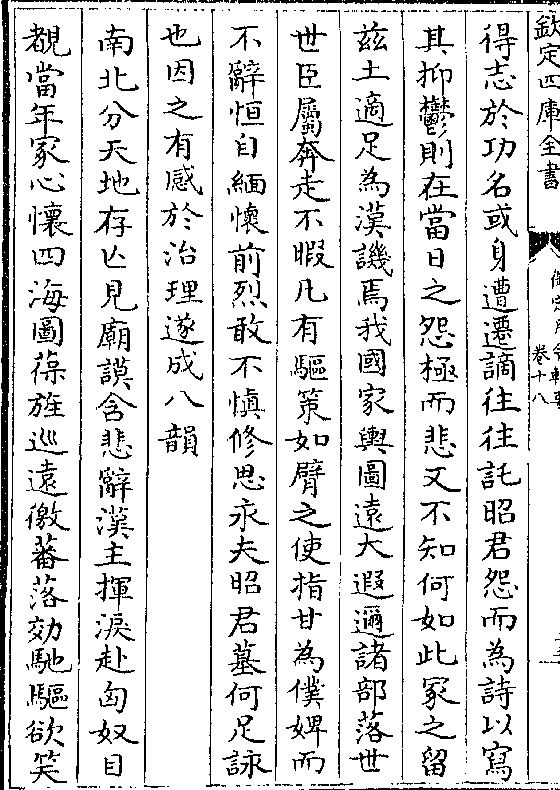 欽定四庫全書
卷十八
得志於功名或身遭遷謫往往託昭君怨而為詩以寫
其抑鬱則在當日之怨極而悲又不知何如此冢之留
兹土適足為漢譏焉我國家輿圖遠大遐邇諸部落世
世臣屬奔走不暇凡有驅策如臂之使指甘為僕婢而
不辭恒自緬懷前烈敢不慎修思永夫昭君墓何足詠
也因之有感於治理遂成八韻
南北分天地存亾見廟謨含悲辭漢主揮淚赴匈奴目
覩當年冢心懷四海圖葆旌巡遠徼蕃落効馳驅欲笑